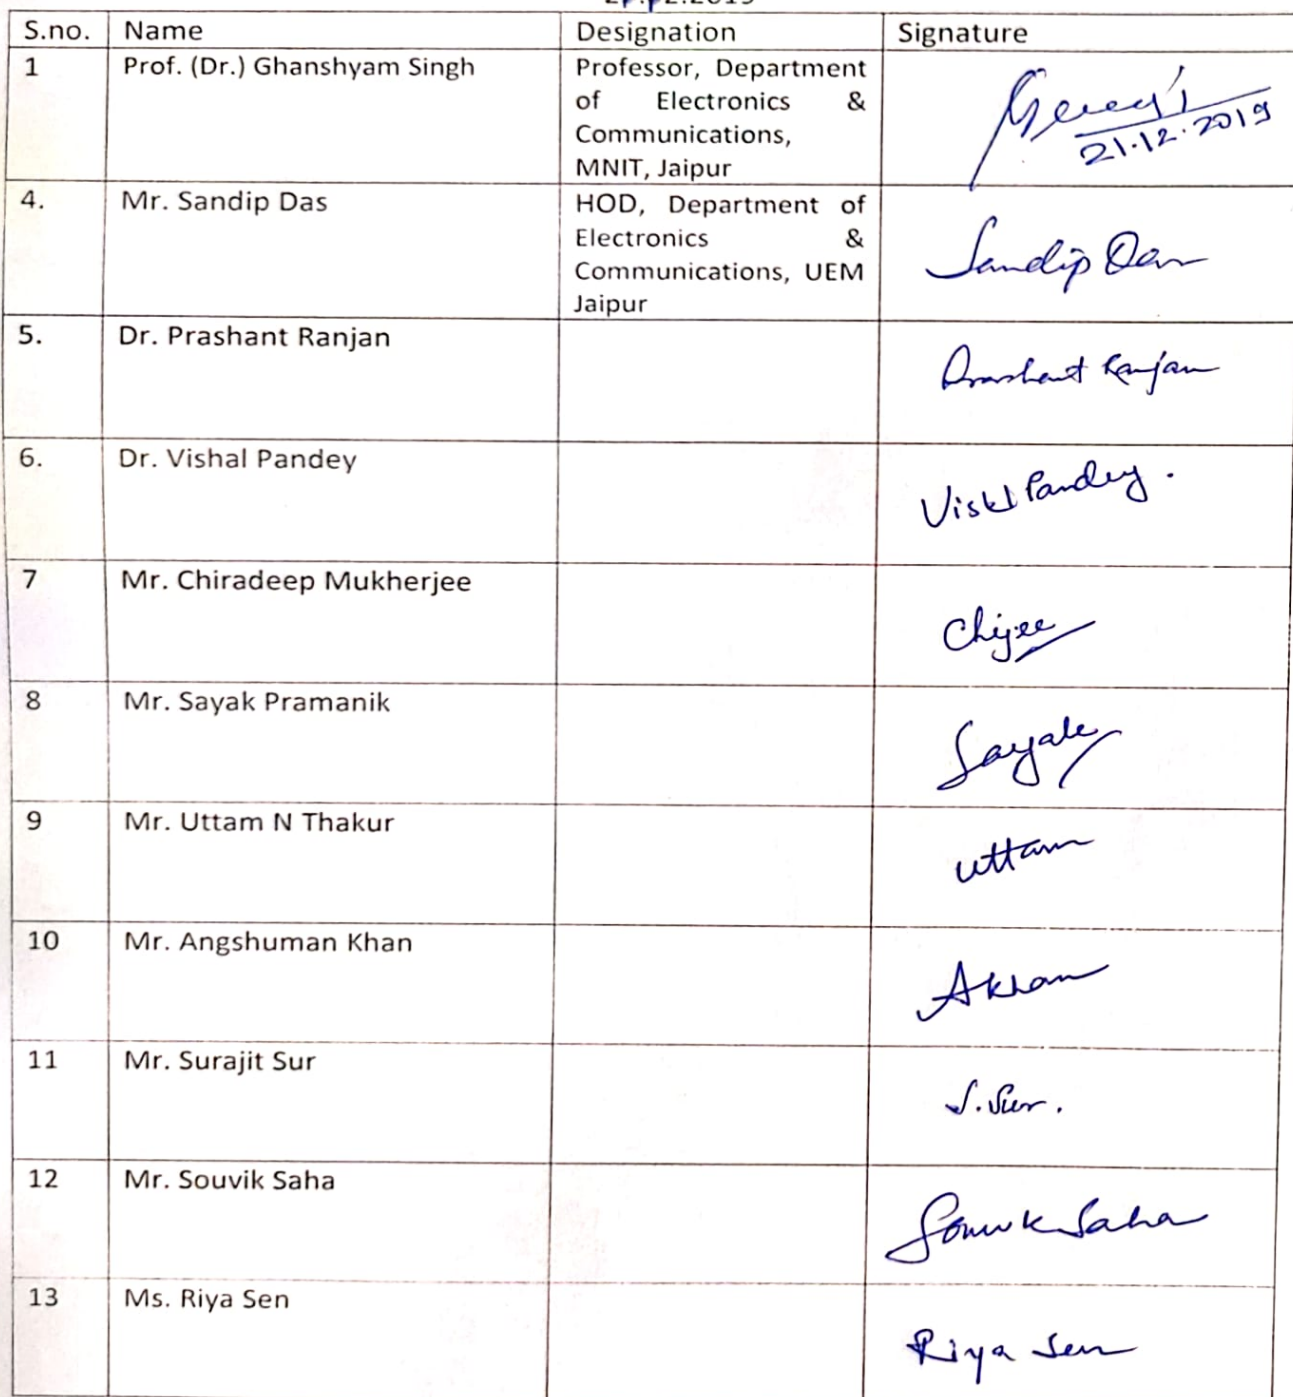 S.no. Name Designation Signature
1 Prof. (Dr.) Ghanshyam Singh Professor, Department
of Electronics &
Communications,
MNIT, Jaipur
21.12.2019
4. Mr. Sandip Das HOD, Department of
Electronics &
Communications, UEM
Jaipur
Sandip Das
5. Dr. Prashant Ranjan
Prashant Ranjan
6. Dr. Vishal Pandey
Pandey.
7 Mr. Chiradeep Mukherjee
Chijee
8 Mr. Sayak Pramanik
Sayak
9 Mr. Uttam N Thakur
Uttam
10 Mr. Angshuman Khan
AKhan
11 Mr. Surajit Sur
S.Sur.
12 Mr. Souvik Saha
Souvik Saha
13 Ms. Riya Sen
Riya Sen